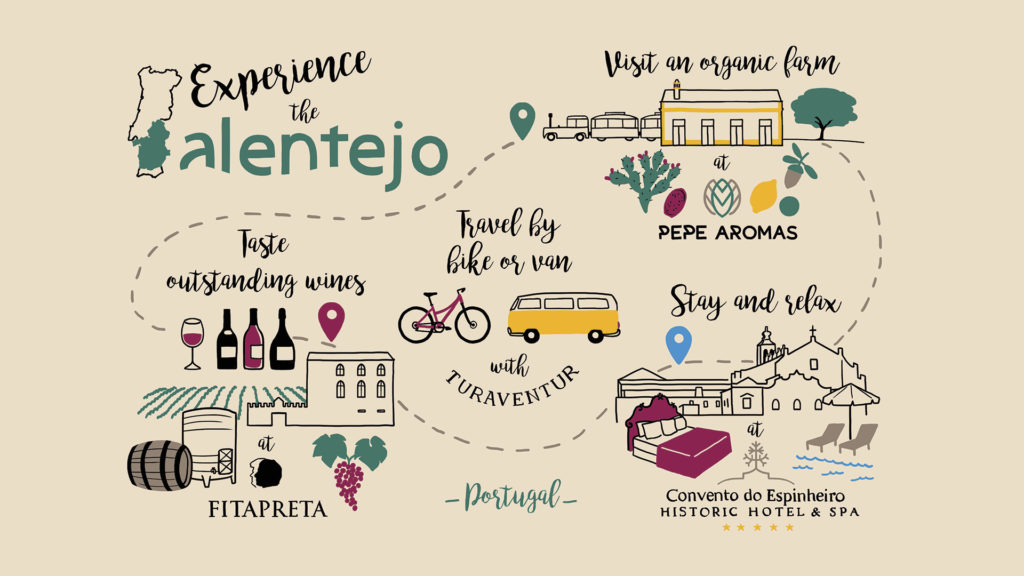 Experience
the
alentejo
Visit an organic farm
at
PEPE AROMAS
Taste
outstanding wines
at
FITAPRETA
Travel by
bike or van
with
TURAVENTUR
Stay and relax
at
Convento do Espinheiro
HISTORIC HOTEL & SPA
– Portugal –